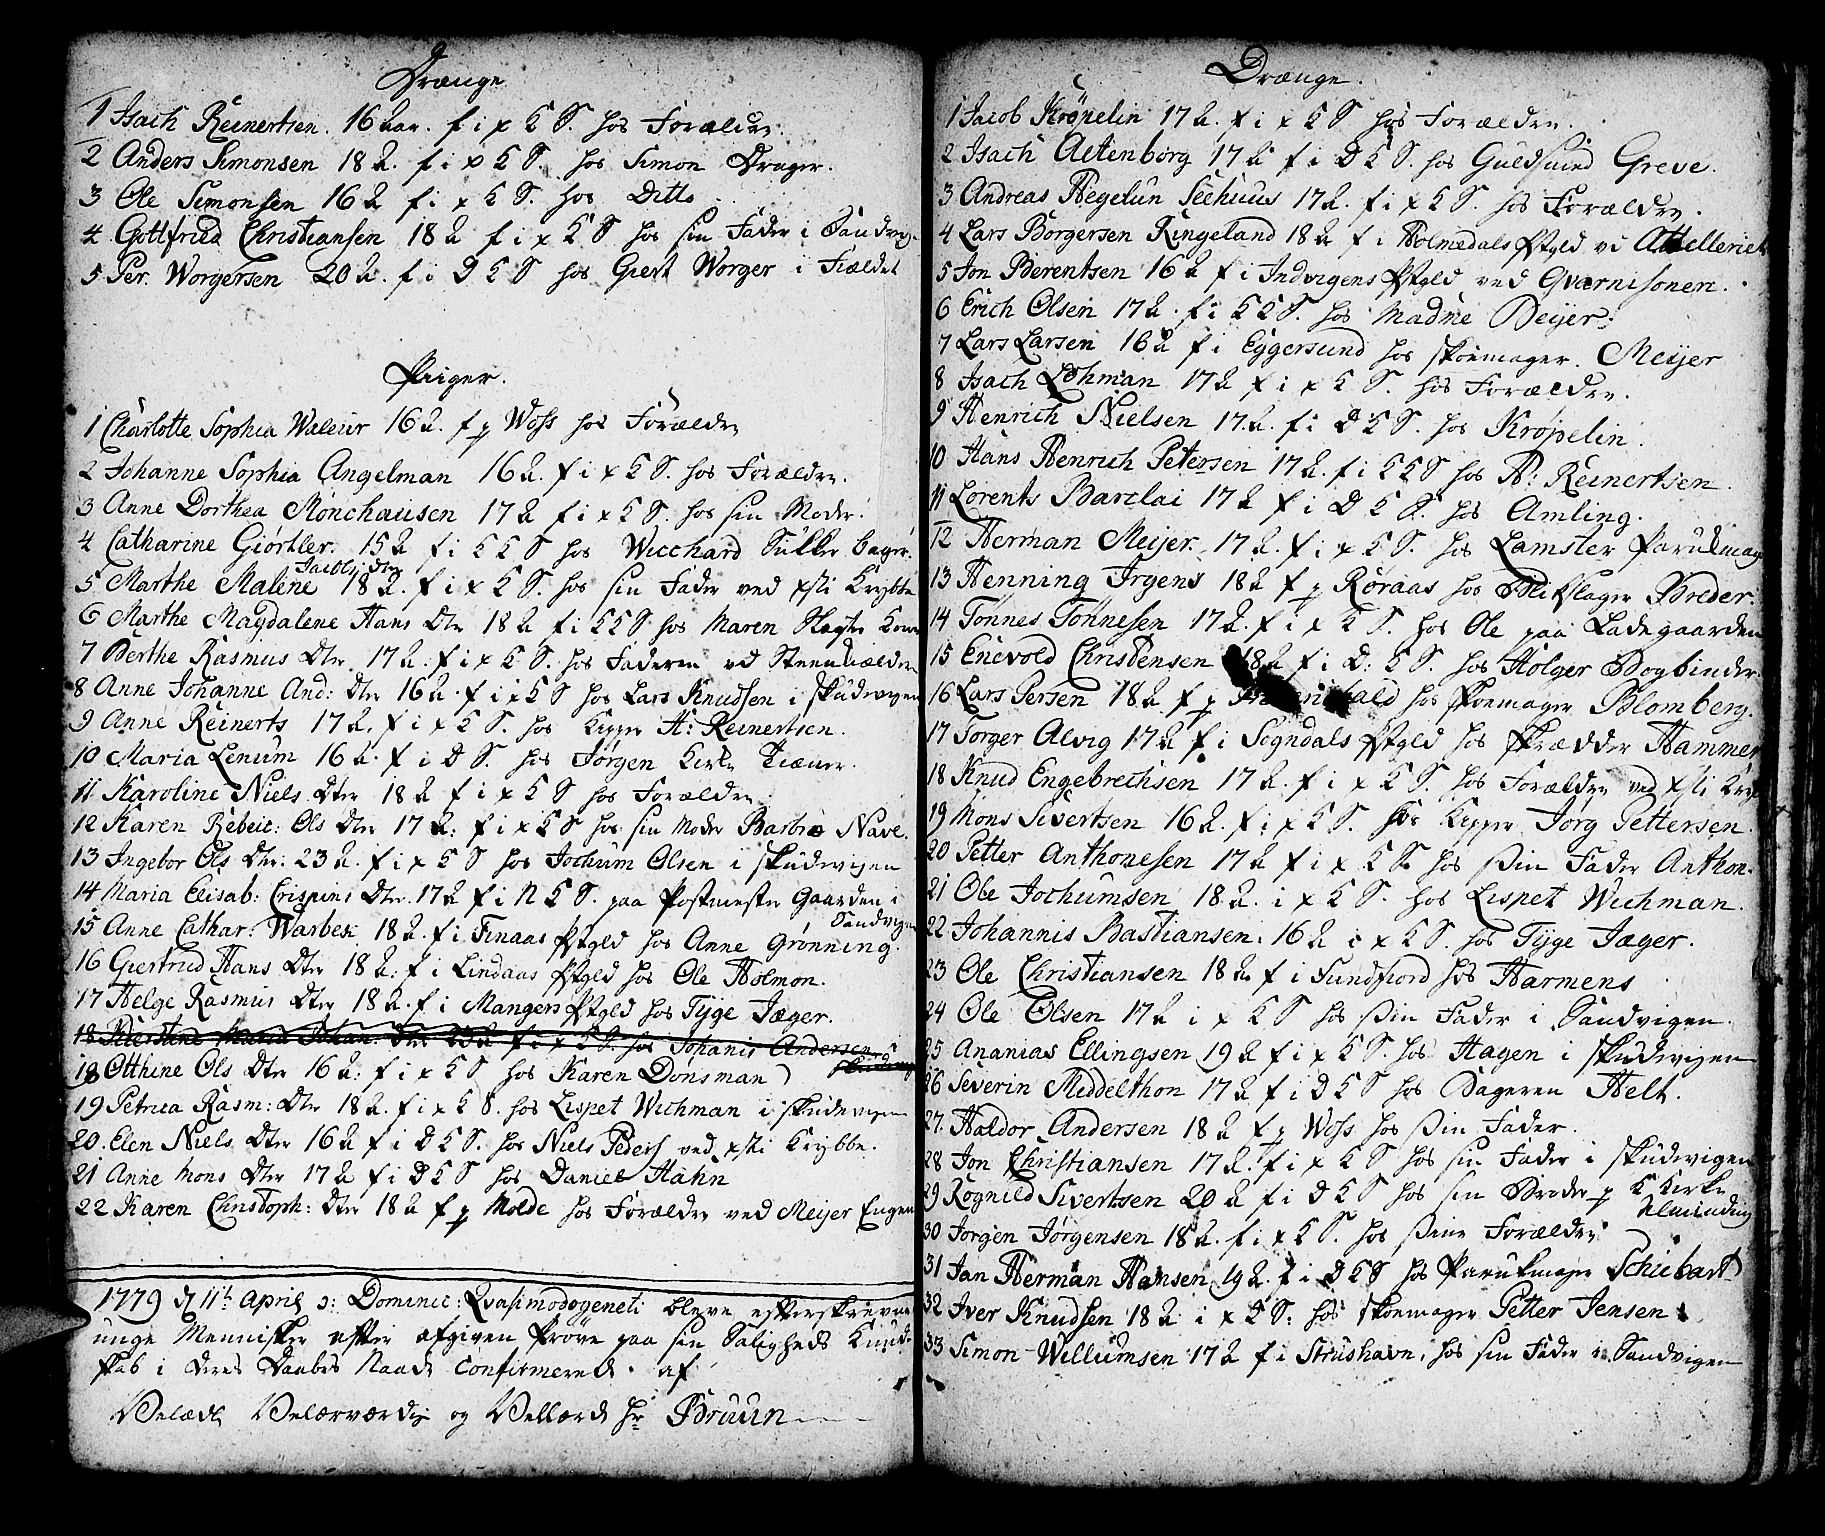 Drænge
1 Isach Reinertsen. 16 aar. f i x K S. hos Forældre.
2 Anders Simonsen 18 a. f i x K S. hos Simon Drager.
3 Ole Simonsen 16 a f i x K S. hos Ditto
4 Gottfried Christiansen 18 a f i x K S hos sin Fader i Sandvig.
5 Per. Worgersen 20 a. f i D K S hos Giert Worger i Fieldet
Piiger.
1 Charlotte Sophia Waleur 16 a. f p Woss hos Forældre
2 Johanne Sophia Angelman 16 a. f i x K S. hos Forældre.
3 Anne Dorthea Mönchausen 17 a f i x K S. hos sin Moder.
4 Catharine Giörtler. 15 a f i K K S hos Wicchard Sukker bager.
Jacobs Dtr
5 Marthe Malene 18 a. f i x K S. hos sin Fader ved xsti Krybbe
6 Marthe Magdalene Hans Dtr 18 a f i K K S hos Maren Slagter Kone
7 Berthe Rasmus Dtr. 17 a. f i x K S. hos Faderen ved Steenkiælderen
8 Anne Johanne And: Dtr 16 a. f i x K S hos Lars Knudsen i Skudevigen
9 Anne Reinerts 17 a. f i x K S. hos Kipper H: Reinertsen.
10 Maria Lenium 16 a. f i D S. hos Jørgen Kirke Tiæner.
11 Karoline Niels Dtr 18 a f i x K S hos Forældre.
12 Karen Rebeic: Ols Dtr 17 a: f i x K S hos sin Moder Barbræ Nave.
13 Ingebor Ols Dtr: 23 a. f i x K S hos Jochum Olsen i Skudevigen
14 Maria Elisab: Crispins Dtr. 17 a f i N K S. paa Postmester Gaarden i
Sandvigen
15 Anne Cathar: Warbek 18 a. f i Finaas Pstgld hos Anne Grønning.
16 Giertrud Hans Dtr 18 a: f i Lindaas Pstgld hos Ole Holmon.
17 Helge Rasmus Dtr 18 a. f i Mangers Pstgld hos Tyge Jæger.
18 Maria Johan: Dtr f i x K S. hos Johanis Andersen i
Skudevig
18 Otthine Ols Dtr 16 a: f i x K S hos Karen Donsman
19 Petrica Rasm: Dtr 18 a. f i x K S. hos Lispet Wichman i Skudevigen
20. Elen Niels Dtr 16 a f i D K S. hos Niels Peders ved xsti Krybbe.
21 Anne Mons Dtr 17 a f i D K S hos Daniel Hahn
22 Karen Christoph: Dtr 18 a f p Molde hos Forældre ved Meijer Engen
1779 d 11te April ɔ: Dominic: Qvasimodogeneti bleve efterskrevne
unge Mennisker efter afgiven Prøve paa sin Saligheds Kund-
skab i deres Daabes Naade Confirmerede af
Velædle Velærværdig og Vellærde Hr Bruun

Drænge.
1 Jacob Kröpelin 17 a. f i x K S hos Forældre.
2 Isach Altenborg 17 a f i D K S. hos Guldsmed Greve.
3 Andreas Hegelun Seehuus 17 a. f i x K S. hos Forældre.
4 Lars Borgersen Ringeland 18 a f i Holmedals Pstgld vi Attelleriet
5 Jon Berentsen 16 a f i Indvigens Pstgld ved Gvarnisonen.
6 Erich Olsen 17 a. f i K K S. hos Madme Beijer.
7 Lars Larsen 16 a f i Eggersund hos Skoemager. Meijer
8 Isach Lohman 17 a f i x K S. hos Forældre.
9 Henrich Nielsen 17. a. f i D K S. hos Kröpelin.
10 Hans Henrich Petersen 17 a. f i K K S hos H: Reinertsen
11 Lorents Barclai 17 a f i D K S. hos Amling.
12 Herman Meijer. 17 a. f i x K S. hos Lamster Parukmag
13 Henning Irgens 18 a f p Røraas hos Blikslager Breder.
14 Tönnes Tönnesen 17 a. f i x K S. hos Ole paa Ladegaarden
15 Enevold Christensen 18 a f i D: K S. hos Holger Bogbinder
16 Lars Persen 18 a f p hos Skoemager Blomberg.
17 Torger Alvig 17 a f i Sogndals Pstgld hos Skrædder Hammer
18 Knud Engebrechsen 17 a. f i x K S. hos Forældre ved xsti Kry
19 Mons Sivertsen 16 a. f i x K S. hos Kipper Jörg Pettersen.
20 Petter Anthonesen 17 a f i x K S. hos Sin Fader Anthon.
21 Ole Jochumsen 18 a. i x K S. hos Lispet Wichman.
22 Johannis Bastiansen: 16 a i x K S. hos Tyge Jæger.
23 Ole Christiansen 18 a. f i Sundfiord hos Harmens
24 Ole Olsen 17 a i x K S hos Sin Fader i Sandvigen.
25 Ananias Ellingsen 19 a f i x K S. hos Hagen i Skudevigen
26 Severin Middelthon 17 a f i D K S hos Bageren Helt.
27. Haldor Andersen 18 a f p Woss hos Sin Fader.
28 Jon Christiansen 17 a. f i x K S hos sin Fader i Skudevigen
29 Rognild Sivertsen 20 a f i D K S hos sin Broder p K Kirke
Alminding
30 Jorgen Jørgensen 18 a. f i x K S. hos Sine Forældre
31 Jan Herman Hansen 19 a. f i D K S hos Parukmager Schiebart
32 Iver Knudsen 18 a i x K S: hos Skoemager Petter Jensen
33 Simon Willumsen 17 a f i Strushavn, hos sin Fader i Sandvigen